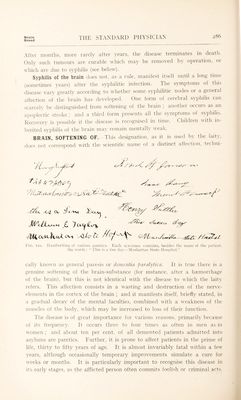 Brain
Breast
THE STANDARD PHYSICIAN
286
After months, more rarely after years, the disease terminates in death.
Only such tumours are curable which may be removed by operation, or
which are due to syphilis (see below).
Syphilis of the brain does not, as a rule, manifest itself until a long time
(sometimes years) after the syphilitic infection. The symptoms of this
disease vary greatly according to whether some syphilitic nodes or a general
affection of the brain has developed. One form of cerebral syphilis can
scarcely be distinguished from softening of the brain; another occurs as an
apoplectic stroke; and a third form presents all the symptoms of syphilis.
Recovery is possible if the disease is recognised in time. Children with in-
herited syphilis of the brain may remain mentally weak.
BRAIN, SOFTENING OF. This designation, as it is used by the laity,
does not correspond with the scientific name of a distinct affection, techni-
this is a fine Day.
Henry
William E Taylor
Manhattan State
Manhattan State Hospital
Handwriting of various paretics. Each scrawl contains, besides the name of the patient,
the words: "This is a fine day—Manhattan State Hospital."
cally known as general paresis or dementia paralytica. It is true there is a
genuine softening of the brain-substance (for instance, after a hemorrhage
of the brain), but this is not identical with the disease to which the laity
refers. This affection consists in a wasting and destruction of the nerve-
elements in the cortex of the brain; and it manifests itself, briefly stated, in
a gradual decay of the mental faculties, combined with a weakness of the
muscles of the body, which may be increased to loss of their function.
The disease is of great importance for various reasons, primarily because
of its frequency. It occurs three to four times as often in men as in
women; and about ten per cent. of all demented patients admitted into
asylums are paretics. Further, it is prone to affect patients in the prime of
life, thirty to fifty years of age. It is almost invariably fatal within a few
years, although occasionally temporary improvements simulate a cure for
weeks or months. It is particularly important to recognise this disease in
its early stages, as the afflicted person often commits foolish or criminal acts